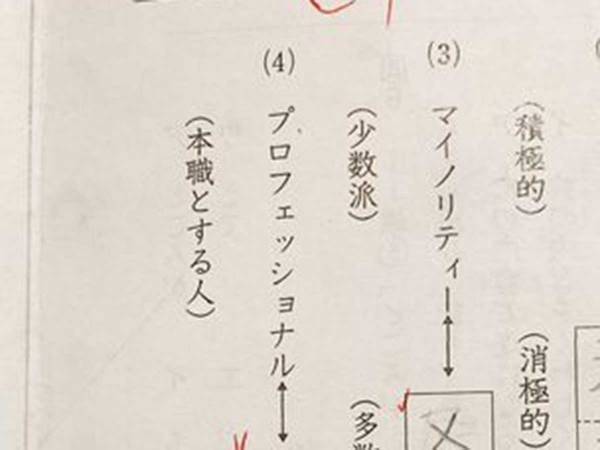 (積極的)
(消極的)
(3)
マイノリティー
メ
(少数派)
(多数
(4)
プロフェッショナル
(本職とする人)